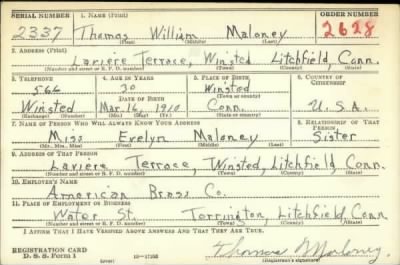 SERIAL NUMBER 1. NAME (Print) ORDER NUMBER
2337 Thomas William Maloney 2628
(First) (Middle) (Last)
2. ADDRESS (Print)
Laviere Terrace, Winsted Litchfield, Conn.
(Number and street or R. F. D. number) (Town) (County) (State)
3. TELEPHONE 4. AGE IN YEARS 5. PLACE OF BIRTH 6. COUNTRY OF CITIZENSHIP
566 30 Winsted
DATE OF BIRTH (Town or county)
Winsted Mar. 16, 1910 Conn. U.S.A.
(Exchange) (Number) (Mo.) (Day) (Yr.) (State or country)
7. NAME OF PERSON WHO WILL ALWAYS KNOW YOUR ADDRESS 8. RELATIONSHIP OF THAT PERSON
Miss Evelyn Maloney Sister
(Mr., Mrs., Miss) (First) (Middle) (Last)
9. ADDRESS OF THAT PERSON
Laviere Terrace, Winsted, Litchfield, Conn.
(Number and street or R. F. D. number) (Town) (County) (State)
10. EMPLOYER'S NAME
American Brass Co.
11. PLACE OF EMPLOYMENT OR BUSINESS
Water St. Torrington, Litchfield, Conn
(Number and street or R. F. D. number) (Town) (County) (State)
I AFFIRM THAT I HAVE VERIFIED ABOVE ANSWERS AND THAT THEY ARE TRUE.
REGISTRATION CARD Thomas Maloney
D. S. S. Form 1 (over) (Registrant's signature)